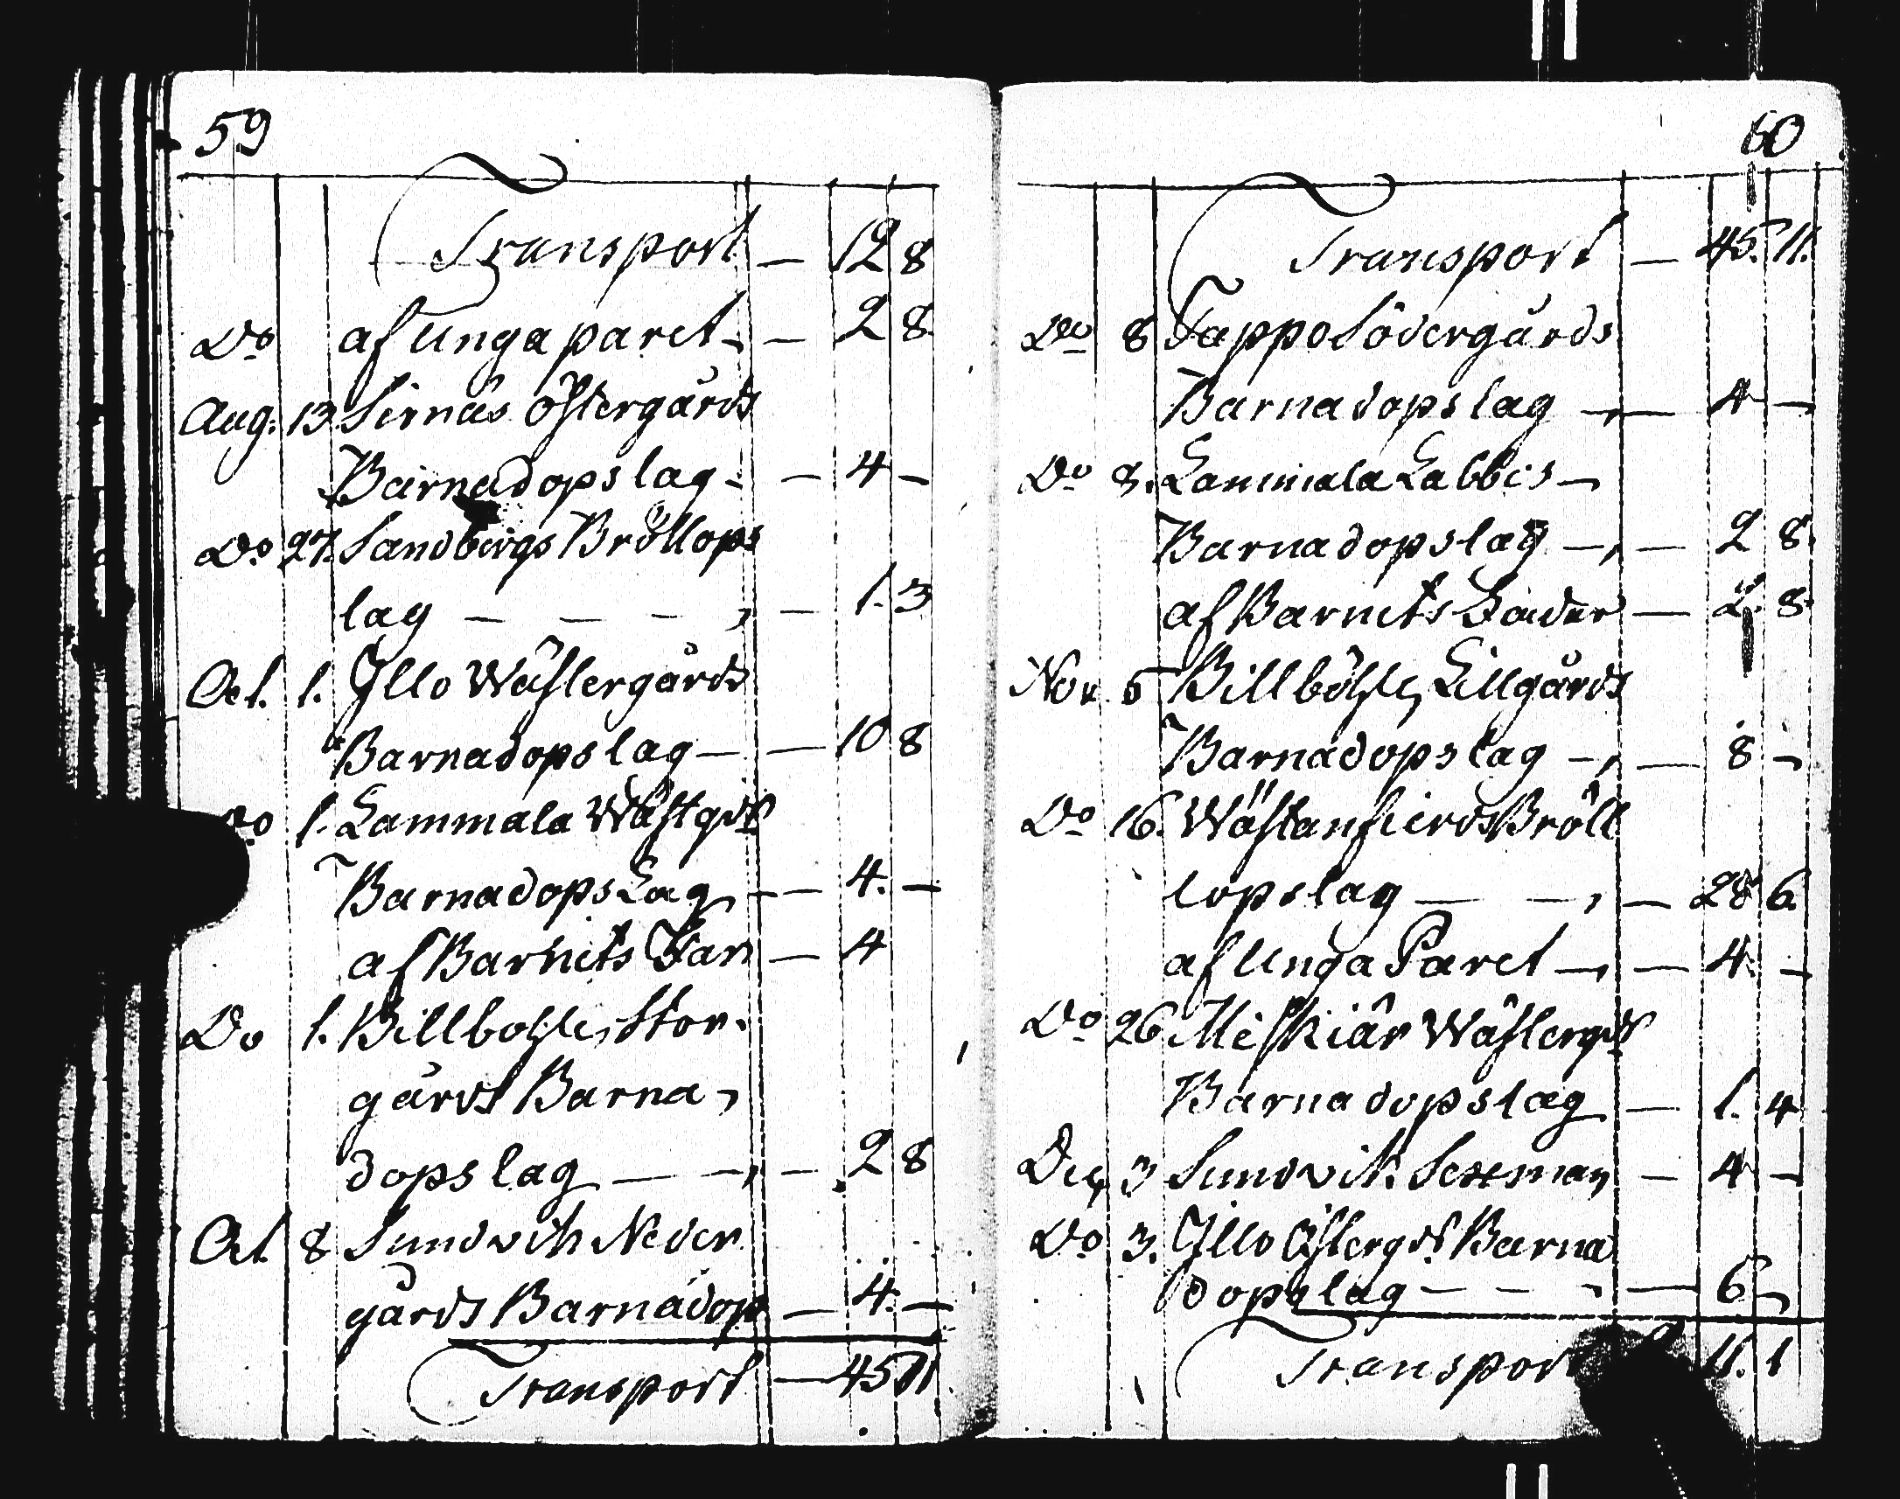 59
Transport — 12 8
Do af Unga paret — 2 8
Aug. 13 Sirnäs Östergårds
Barnadopslag — 4 —
Do 27. Sandbergs Bröllops
lag — — — 1. 3
Oct. 1. Illo Wästergårds
Barnadopslag — 10 8
Do 1. Lammala Wästgrds
Barnadops Lag — 4. —
af Barnets Far — 4
Do 1. Billbohle Stor-
gårds Barna,
dopslag — — 2 8
Oct 8 Sundvik Neder
gårds Barnadop — 4. —
Transport — 45 11
60
Transport — 45. 11.
Do 8 Tappo Södergårds
Barnadopslag — 4 —
Do 8. Lammala Labbes —
Barnadopslag — 2 8.
af Barnets Fader — 2. 8.
Nov 5 Billböhle Lillgårds
Barnadopslag — 8 —
Do 16. Wästanfierds Bröll
lopslag — — 28 6.
af Unga Paret — 4. —
Do 26 Miskiär Wästergrds
Barnadopslag — 1. 4
Dec 3 Sundvik Sexman — 4 —
Do 3. Illo Östergrds Barna
dopslag — — — 6 —
Transport 11. 1